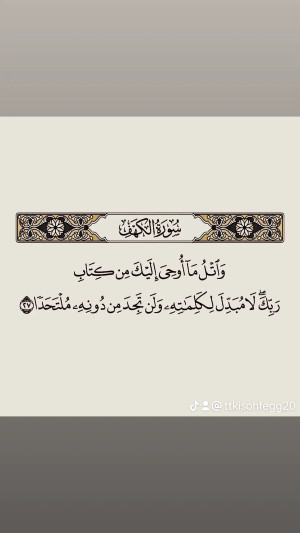 سُورَةُ الكَهْفِ
وَٱتْلُ مَآ أُوحِىَ إِلَيْكَ مِن كِتَابِ
رَبِّكَ ۖ لَا مُبَدِّلَ لِكَلِمَـٰتِهِۦ وَلَن تَجِدَ مِن دُونِهِۦ مُلْتَحَدًا ٢٧
@ttkisonfegg20